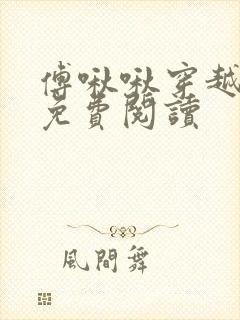 傅啾啾穿越
免費閱讀
風間舞